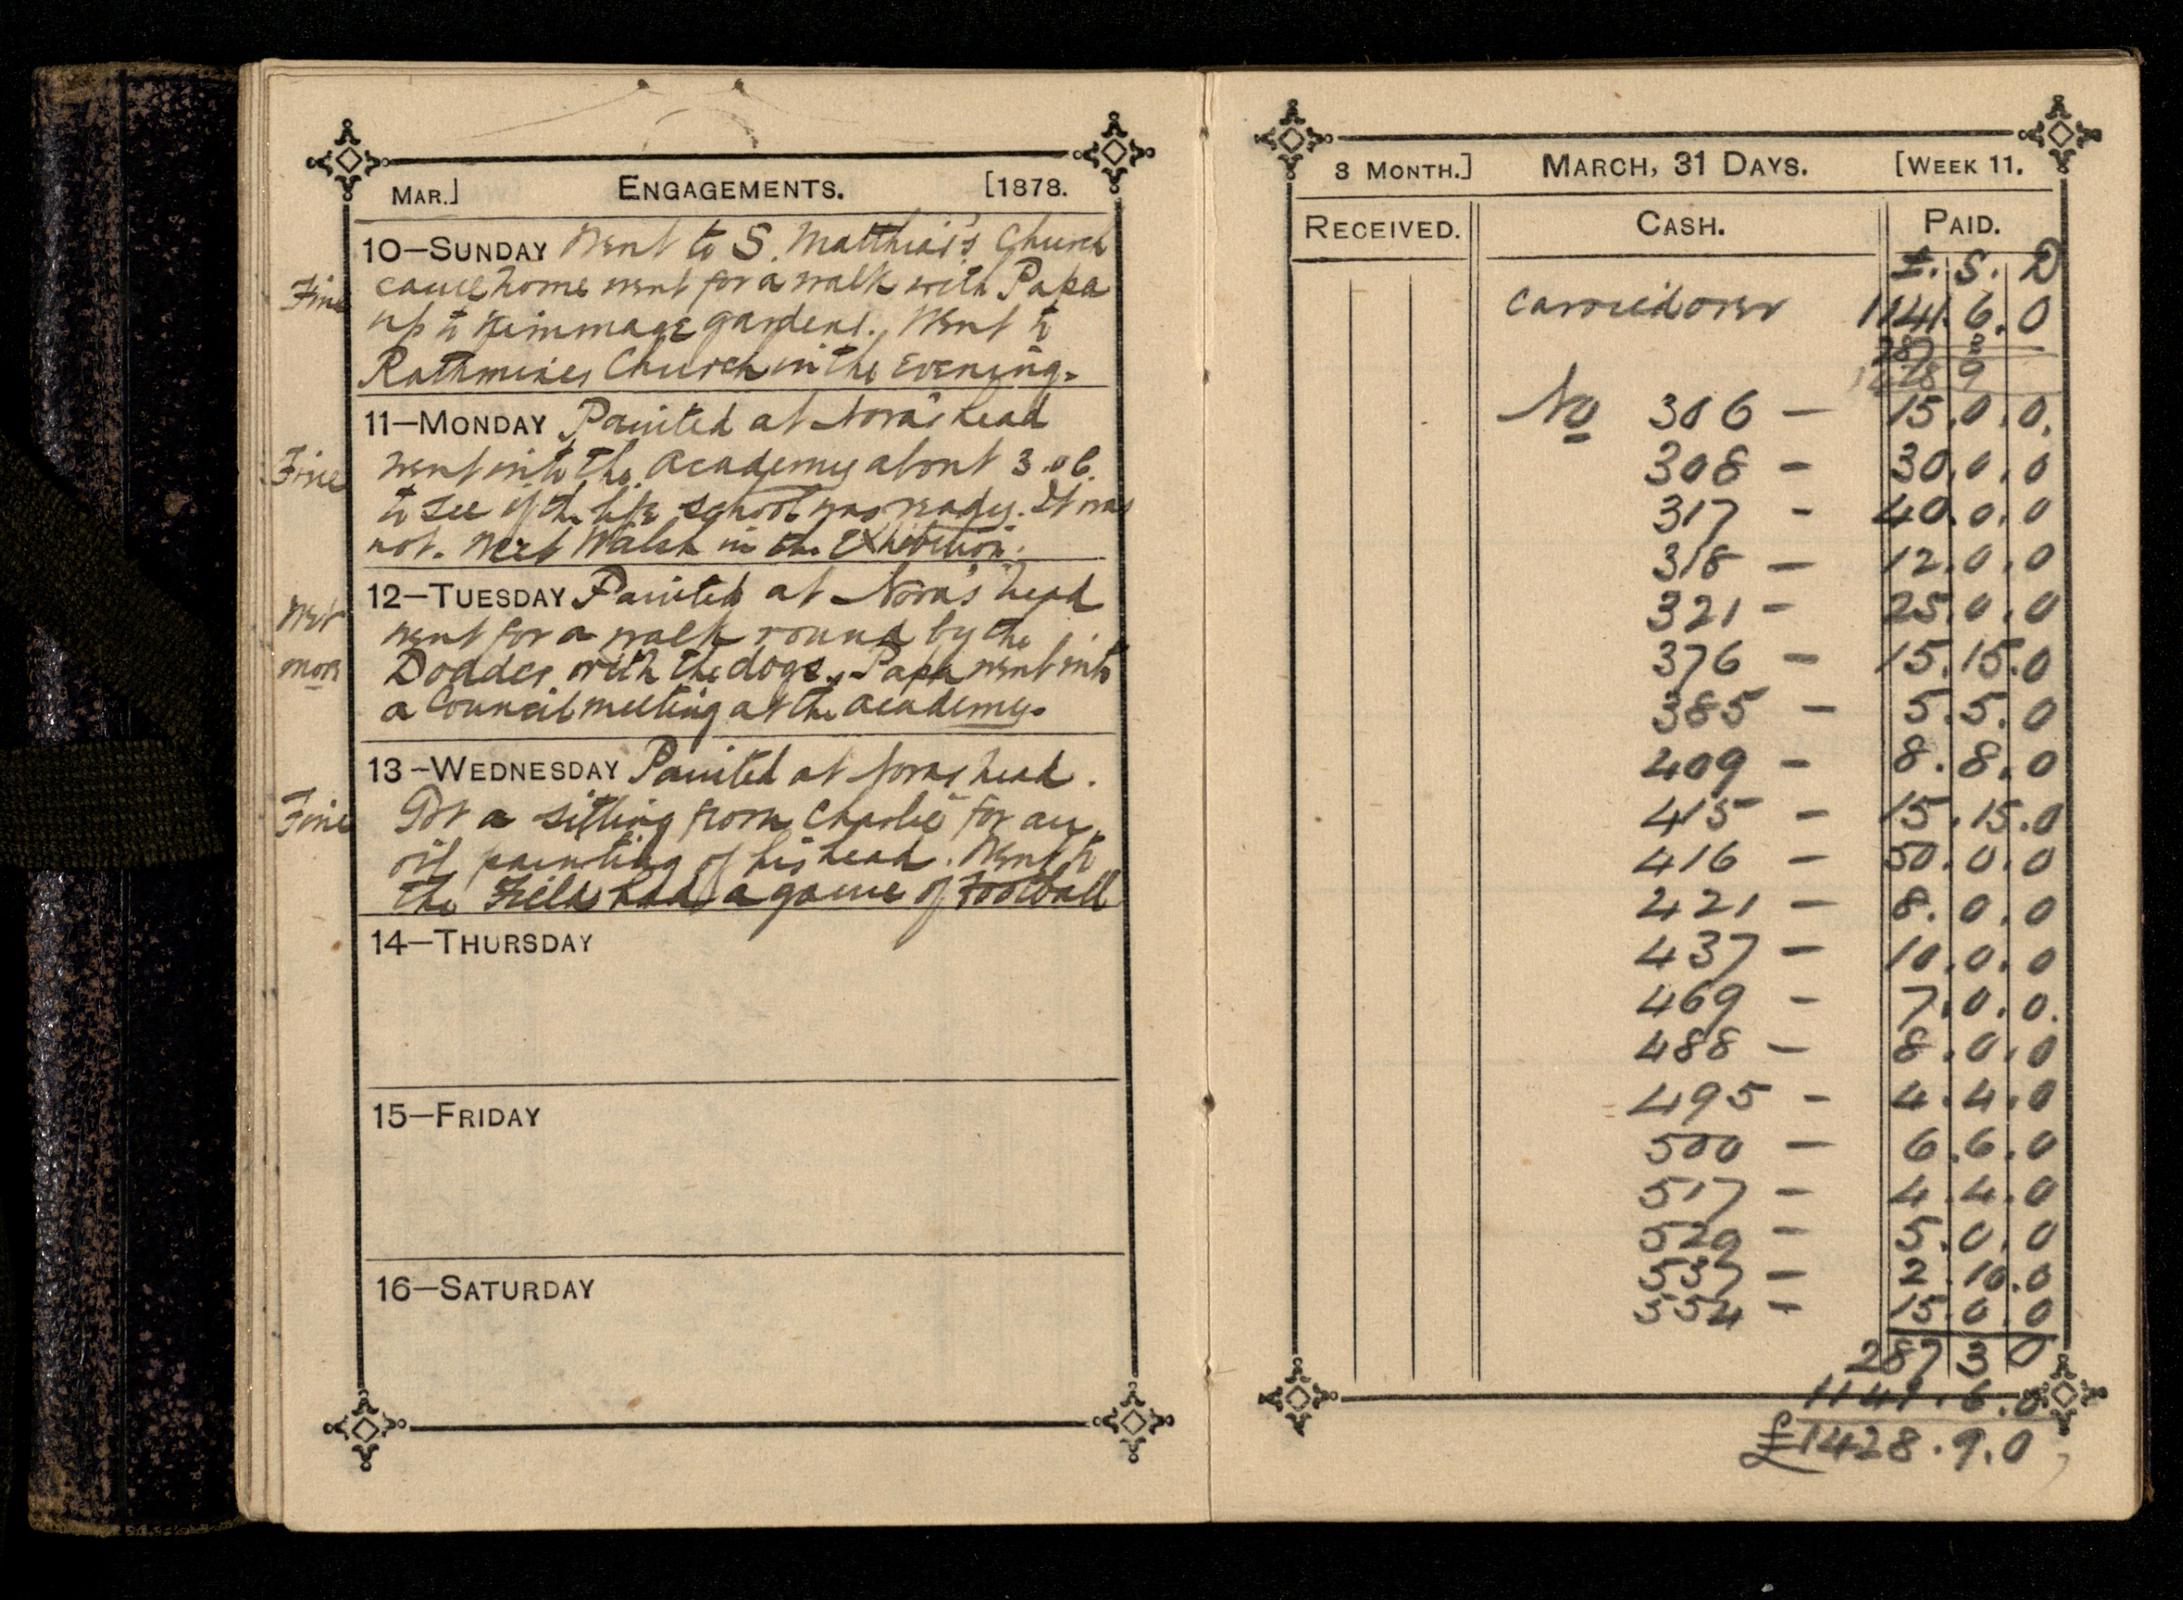 MAR.] ENGAGEMENTS. [1878.
10—SUNDAY Went to S. Matthias's Church
Fine came home went for a walk with Papa
up to Kimmage gardens. Went to
Rathmines Church in the Evening.
11—MONDAY Painted at Nora's head
Fine went into the Academy about 3.o.c.
to see if the life school was ready. It was
not. Met Walsh in the Exhibition.
12—TUESDAY Painted at Nora's head
Wet went for a walk round by the
morn Dodder with the dogs. Papa went into
a Council meeting at the academy.
13—WEDNESDAY Painted at Noras head.
Fine Got a sitting from Charlie for an
oil painting of his head. Went to
the Field had a game of Football
14—THURSDAY
15—FRIDAY
16—SATURDAY
3 MONTH.] MARCH, 31 DAYS. [WEEK 11.
RECEIVED. CASH. PAID.
£. S. D
carried over 1141.6.0
287 3
1428 9
No 306 — 15.0.0.
308 — 30.0.0
317 - 40.0.0
318 — 12.0.0
321 - 25.0.0
376 — 15.15.0
385 — 5.5.0
409 - 8.8.0
415 - 15.15.0
416 — 50.0.0
421 — 8.0.0
437 — 10.0.0
469 - 7.0.0.
488 — 8.0.0
495 - 4.4.0
500 — 6.6.0
517 - 4.4.0
529 — 5.0.0
537 — 2.10.0
554 - 15.0.0
287 3 0
1141.6.0
£1428.9.0